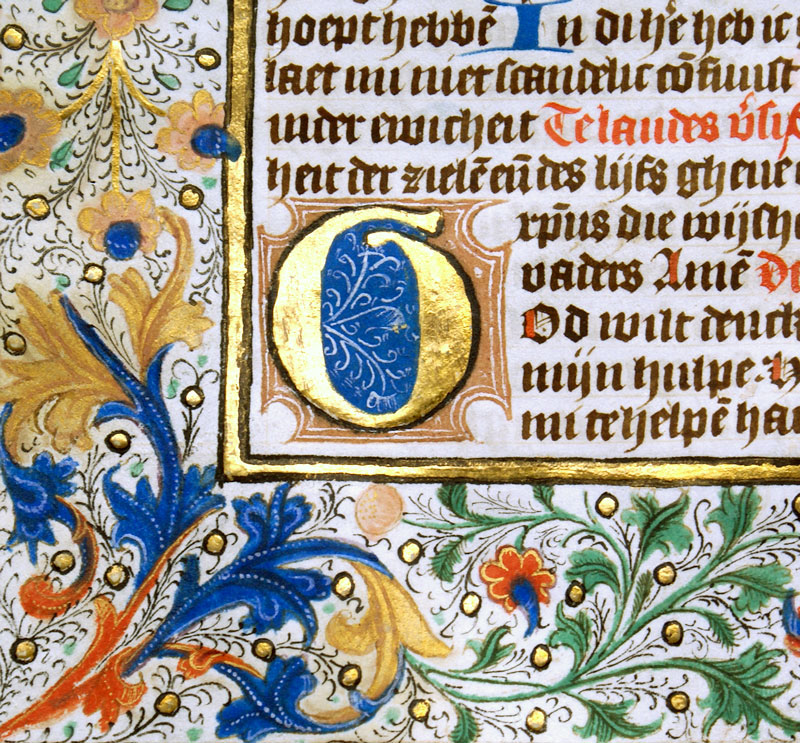 hoept hebbē In di he heb ic
laet mi niet scandelic cōfuust
inder ewicheit Te laudes
heit der zielē eñ des lijfs gheue
xp̄us die wijshe
vaders Amē De
GOd wilt denck
mijn hulpe. H
mi te helpē ha